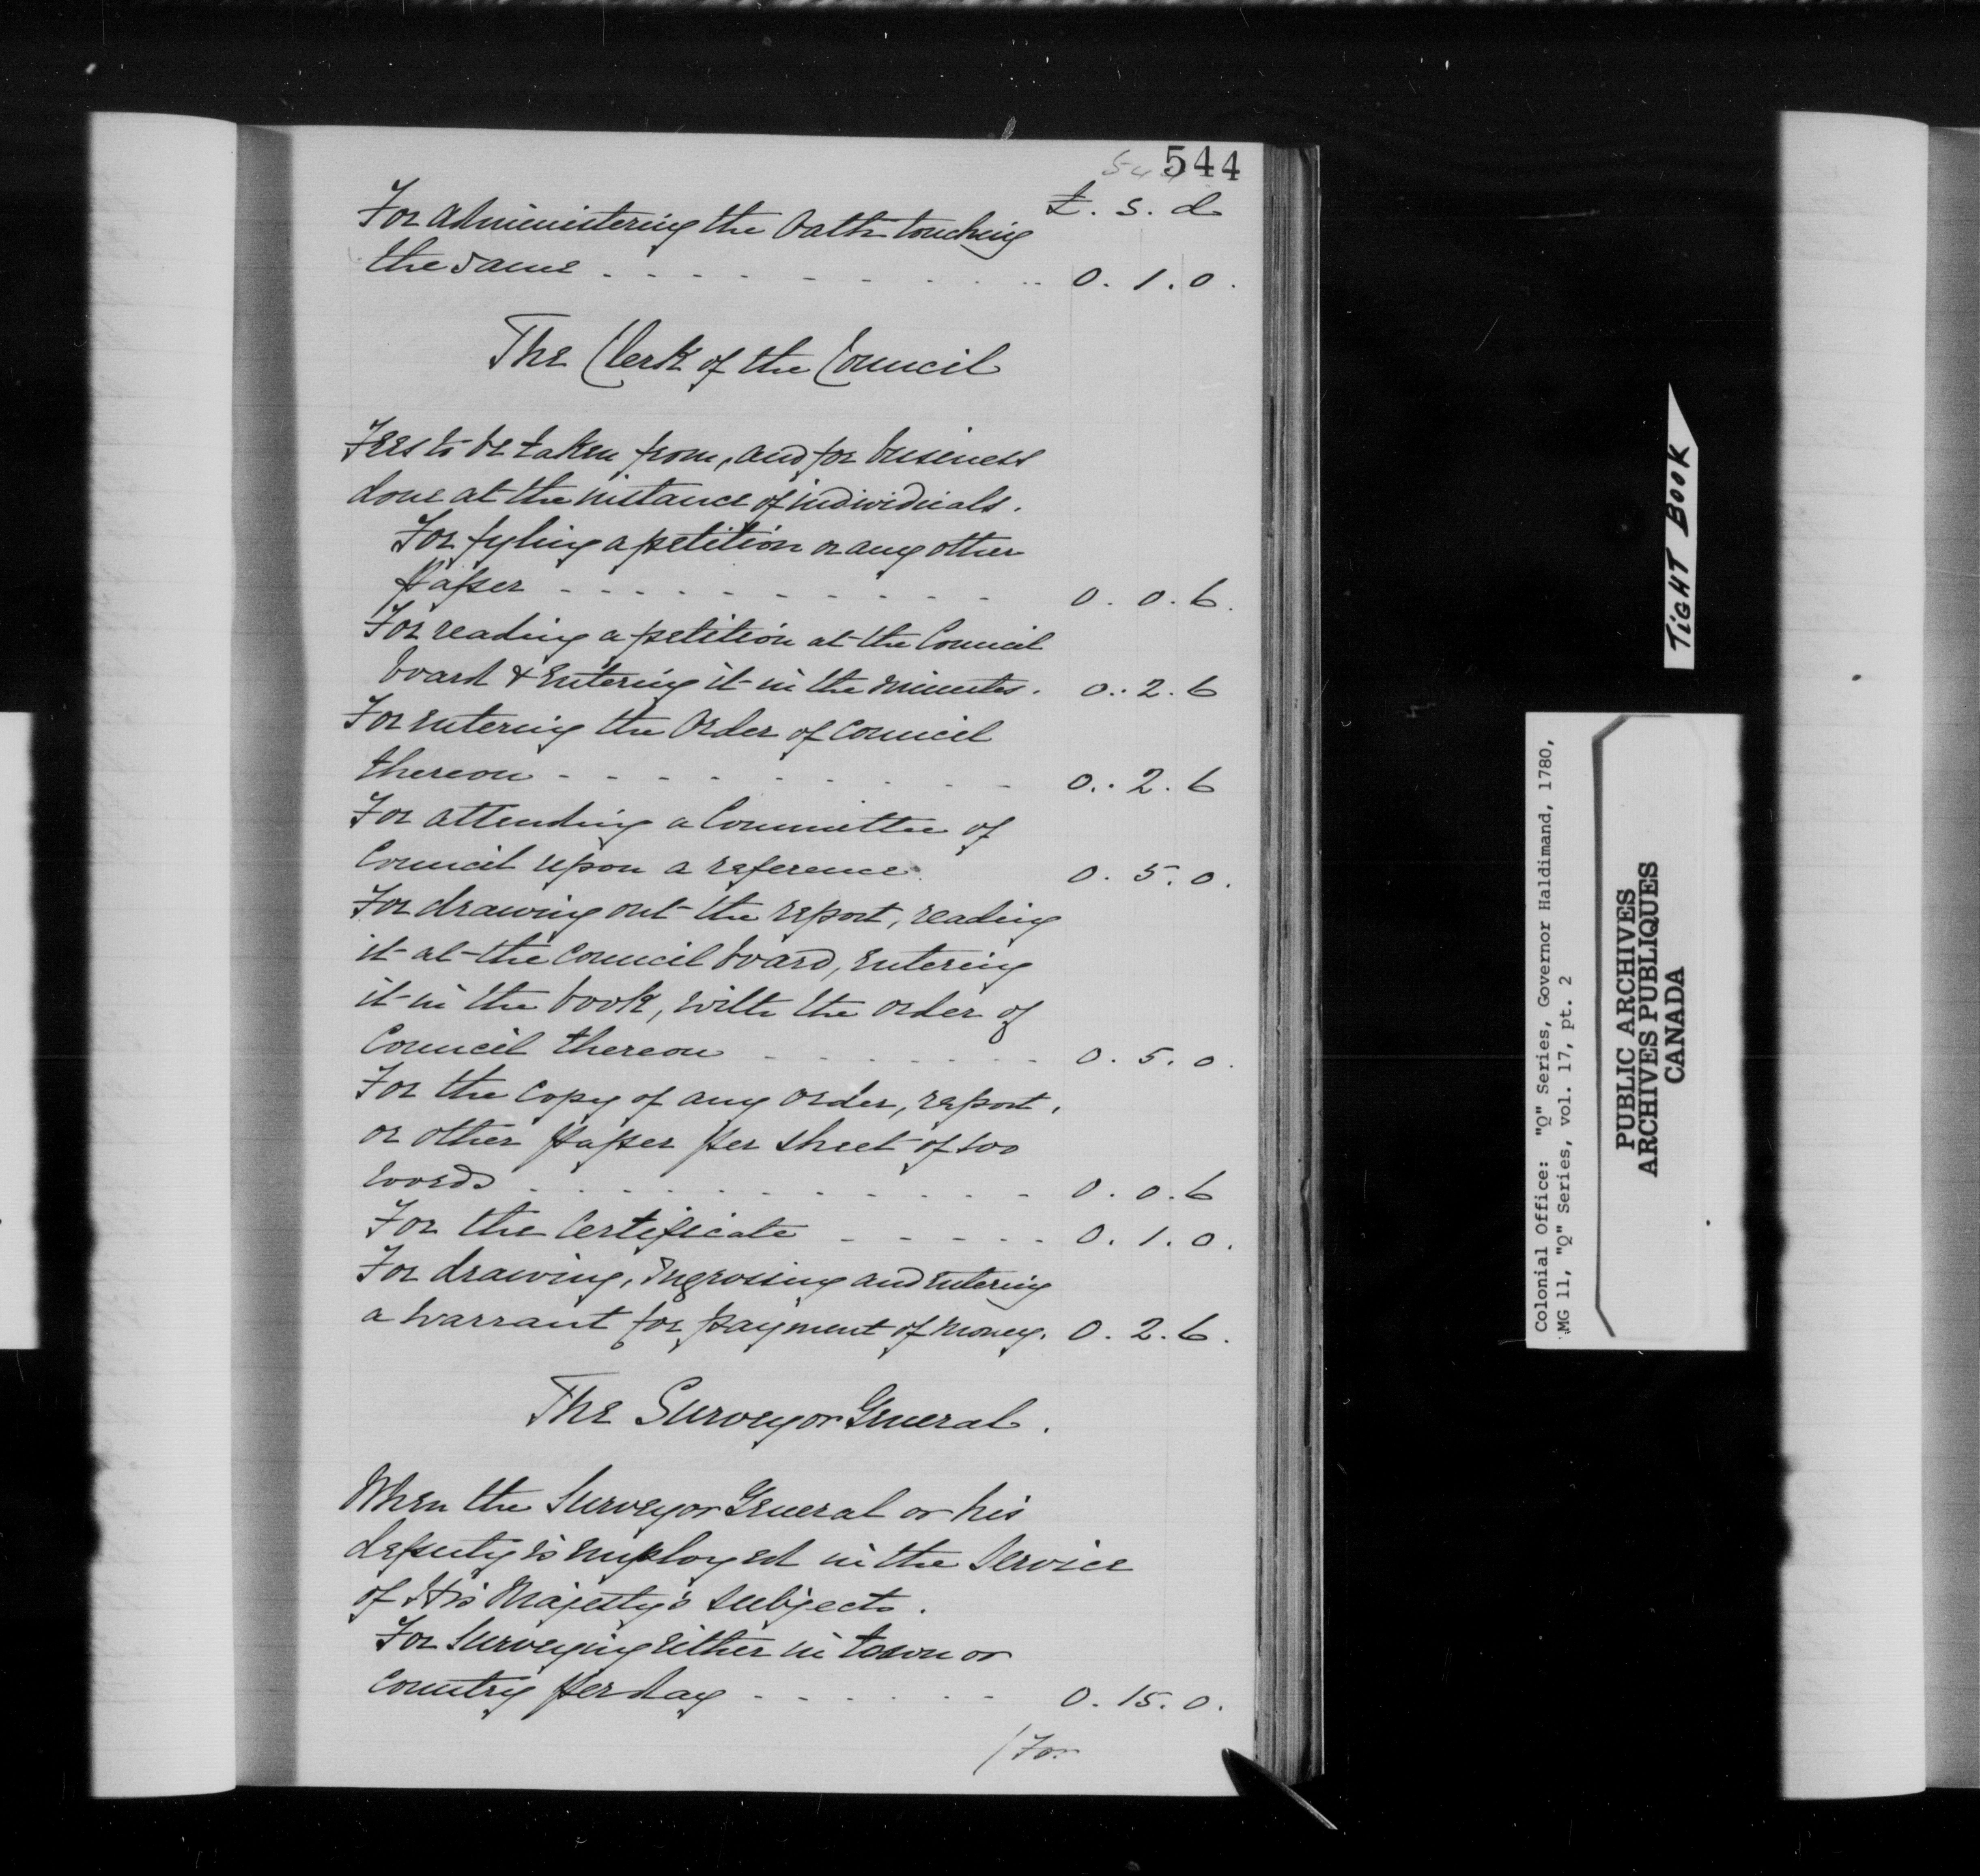 544
£. s. d
For administering the Oath touching
the same . . . . . . . . . . 0. 1. 0.
The Clerk of the Council
Fees to be taken from, and for business
done at the instance of individuals.
For fyling a petition or any other
paper - - - - - - - - - - 0. 0. 6.
For reading a petition at the Council
board & Entering it in the minutes. 0. 2. 6
For entering the Order of Council
thereon - - - - - - - - - 0. 2. 6
For attending a Committee of
Council upon a reference. 0. 5. 0.
For drawing out the report, reading
it at the Council board, entering
it in the book, with the order of
Council thereon - - - - - - - 0. 5. 0.
For the Copy of any order, report,
or other paper per sheet of 100
words - - - - - - - - - - 0. 0. 6
For the Certificate - - - - - 0. 1. 0.
For drawing, Ingrossing and entering
a warrant for payment of money. 0. 2. 6.
The Surveyor General.
When the Surveyor General or his
deputy is employed in the Service
of His Majesty's subjects.
For Surveying either in town or
Country per day - - - - - - 0. 15. 0.
/For
TIGHT BOOK
Colonial Office: "Q" Series, Governor Haldimand, 1780,
MG 11, "Q" Series, vol. 17, pt. 2
PUBLIC ARCHIVES
ARCHIVES PUBLIQUES
CANADA